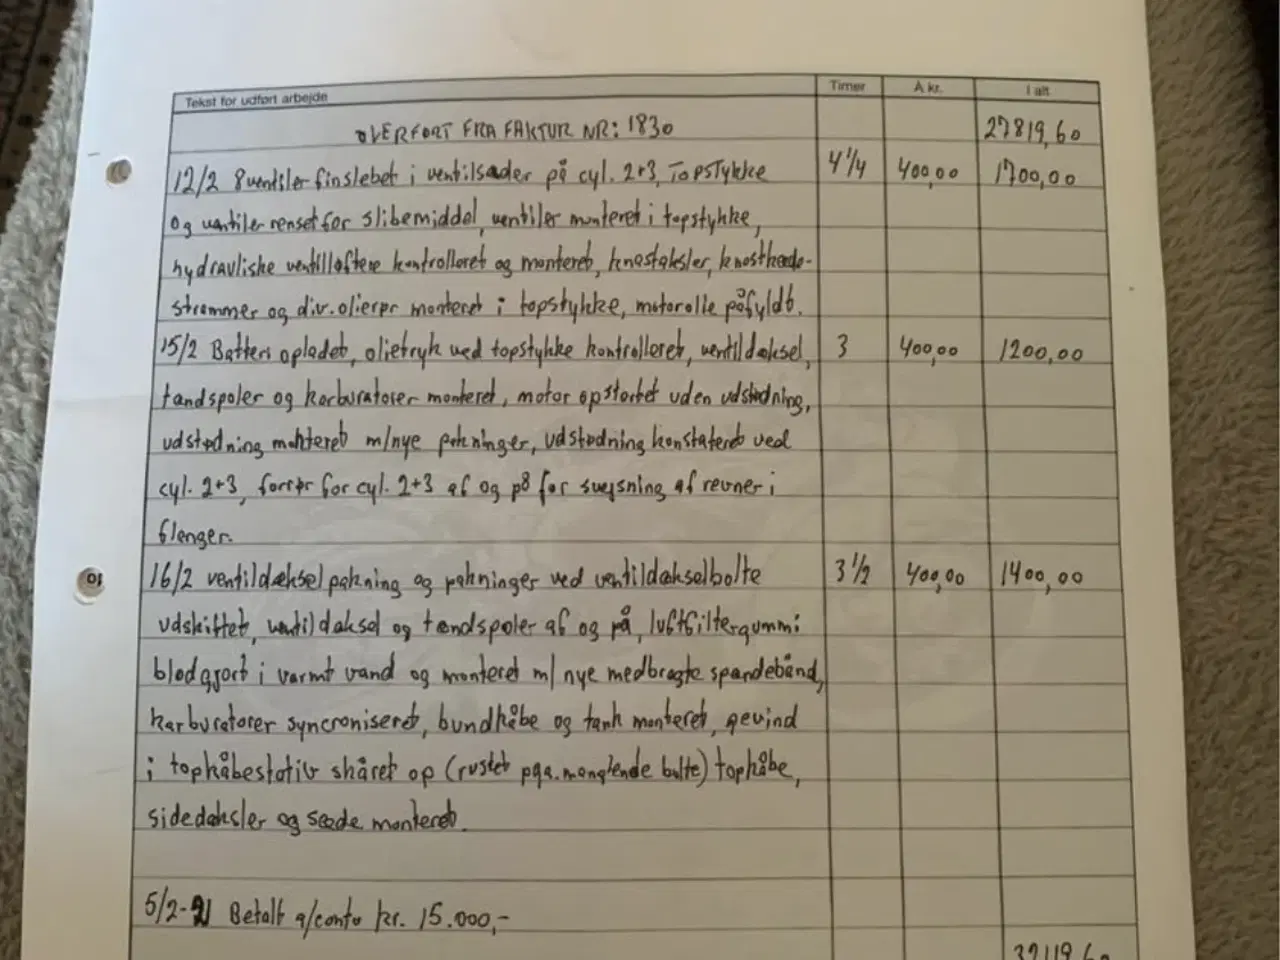 Tekst for udført arbejde Timer Á kr. I alt
OVERFØRT FRA FAKTUR NR: 1830 27819,60
12/2 8 ventiler finslebet i ventilsæder på cyl. 2+3, Topstykke 4 1/4 400,00 1700,00
og ventiler renset for slibemiddel, ventiler monteret i topstykke,
hydrauliske ventilløftere kontrolleret og monteret, knastaksler, knastkæde-
strammer og div. olierør monteret i topstykke, motorolie påfyldt.
15/2 Batteri opladet, olietryk ved topstykke kontrolleret, ventildæksel, 3 400,00 1200,00
tændspoler og karburatorer monteret, motor opstartet uden udstødning,
udstødning monteret m/nye pakninger, udstødning konstateret ved
cyl. 2+3, forrør for cyl. 2+3 af og på for svejsning af revner i
flanger.
16/2 ventildækselpakning og pakninger ved ventildækselbolte 3 1/2 400,00 1400,00
udskiftet, ventildæksel og tændspoler af og på, luftfiltergummi
blødgjort i varmt vand og monteret m/ nye medbragte spændebånd,
karburatorer syncroniseret, bundkåbe og tank monteret, gevind
i topkåbestativ skåret op (rustet pga. manglende bolte) topkåbe,
sidedæksler og sæde monteret.
5/2-21 Betalt a/conto kr. 15.000,-
32119,60
10